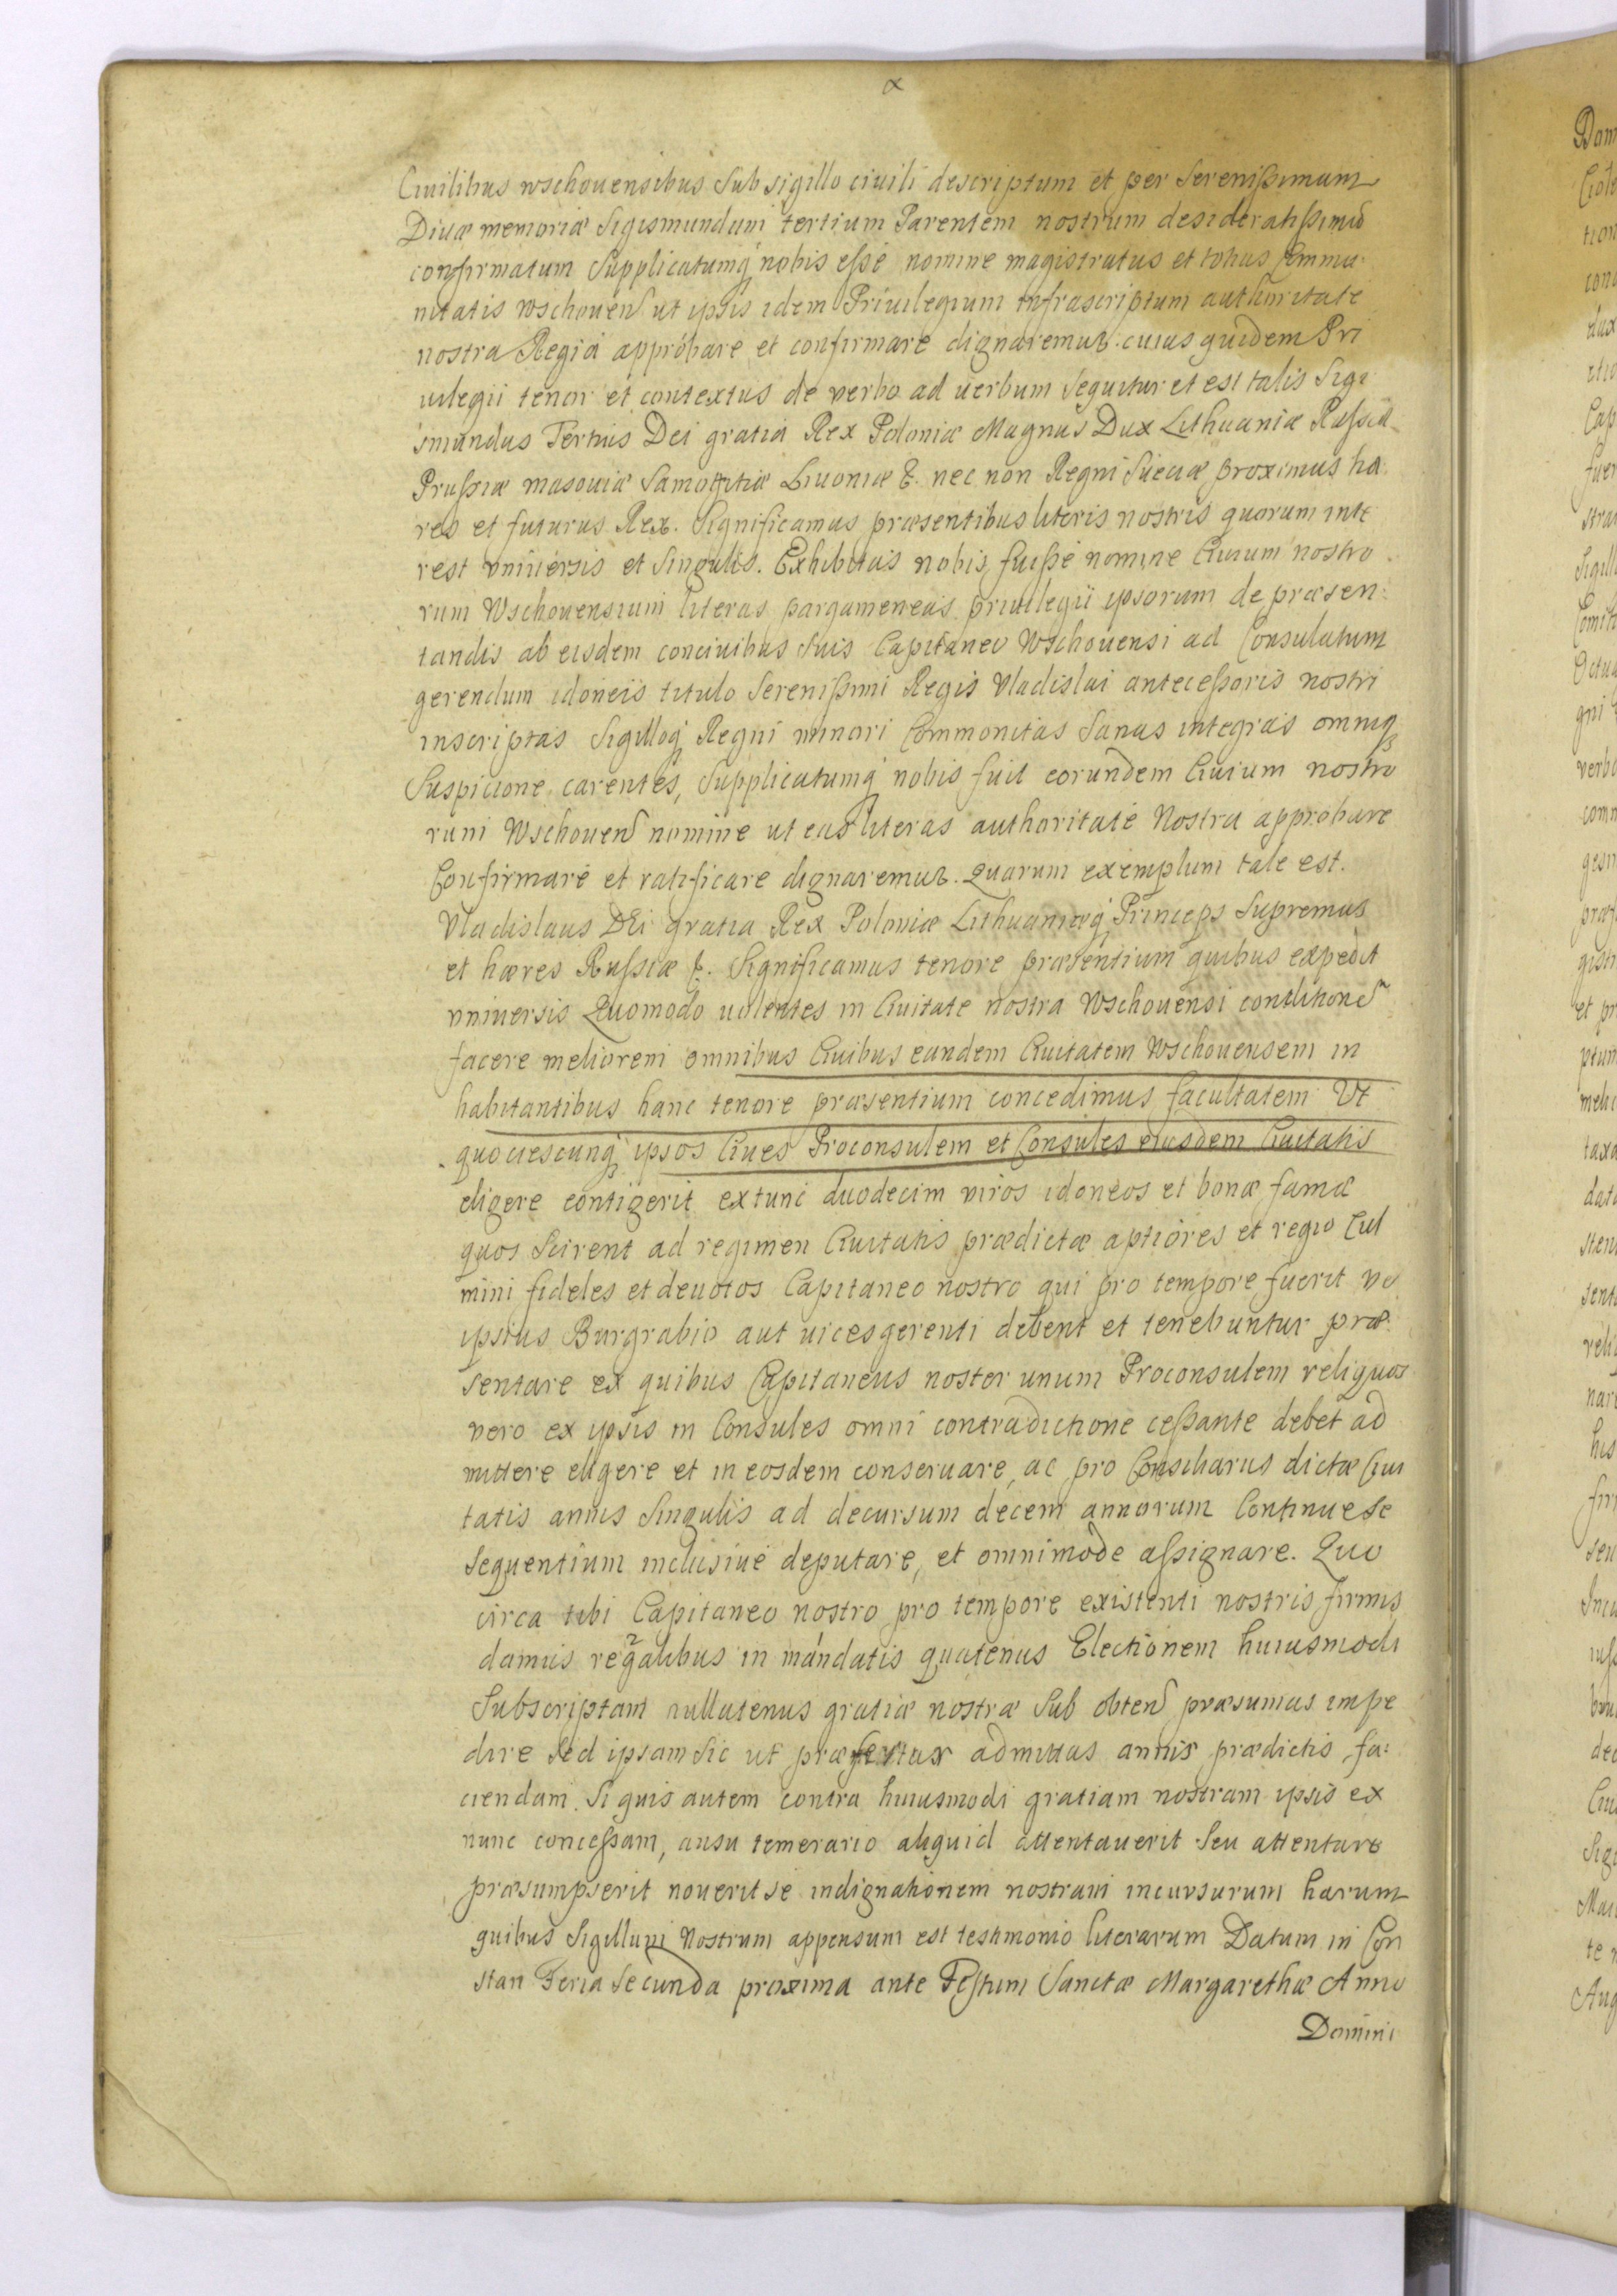 α
Ciuilibus wschouensibus Sub sigillo ciuili descriptum et per Serenißimum
Diuæ memoriæ Sigismundum tertium Parentem nostrum desideratißimū
confirmatum Supplicatumq́ nobis eße nomine magistratus et totius Commu-
nitatis wschouen ut ipsis idem Priuilegium infrascriptum authoritate
nostra Regia approbare et confirmare dignaremur. cuius quidem Pri
uilegii tenor et contextus de verbo ad uerbum Sequitur et est talis Sigi
smundus Tertius Dei gratia Rex Poloniæ Magnus Dux Lithuaniæ Rußiæ
Prußiæ masouiæ Samogitiæ Liuoniæ &. nec non Regni Sueciæ proximus hæ.
res et futurus Rex. Significamus præsentibus literis nostris quorum inte
rest vniuersis et Singulis. Exhibitas nobis fuiße nomine Ciuium nostro
rum Wschouensium literas pargameneas priuilegii ipsorum de præsen:
tandis ab eisdem conciuibus Suis Capitaneo Wschouensi ad Consulatum
gerendum idoneis titulo Serenißimi Regis Vladislai anteceßoris nostri
inscriptas Sigilloq́ Regni minori Commonitas Sanas integras omniq́
Suspicione carentes, Supplicatumq́ nobis fuit eorundem Ciuium nostro
rum Wschouen nomine ut eas literas authoritate Nostra approbare
Confirmare et ratificare dignaremur. Quarum exemplum tale est.
Vladislaus DEi gratia Rex Poloniæ Lithuaniæq́ Princeps Supremus
et hæres Rußiæ &. Significamus tenore præsentium quibus expedit
vniuersis Quomodo uolentes in Ciuitate nostra Wschouensi conditionē
facere meliorem omnibus Ciuibus eandem Ciuitatem Wschouensem in
habitantibus hanc tenore præsentium concedimus facultatem Vt
quociescunq́ ipsos Ciues Proconsulem et Consules eiusdem Ciuitatis
eligere contigerit extunc duodecim viros idoneos et bonæ famæ
quos Scirent ad regimen Ciuitatis prædictæ aptiores et regio Cul
mini fideles et deuotos Capitaneo nostro qui pro tempore fuerit ve
ipsius Burgrabio aut uicesgerenti debent et tenebuntur præ
sentare ex quibus Capitaneus noster unum Proconsulem reliquos
vero ex ipsis in Consules omni contradictione ceßante debet ad
mittere eligere et in eosdem conseruare, ac pro Consiliarus dictæ Ciui
tatis annis Singulis ad decursum decem annorum Continue Se
Sequentium inclusiue deputare, et omnimode aßignare. Quo
circa tibi Capitaneo nostro pro tempore existenti nostris firmis
damus regalibus in mandatis quatenus Electionem huiusmodi
Subscriptam nullatenus gratiæ nostræ Sub obten præsumas impe
dire Sed ipsam Sic ut admittas annis prædictis fa:
ciendam. Si quis autem contra huiusmodi gratiam nostram ipsis ex
nunc conceßam, ausu temerario aliquid attentauerit Seu attentare
præsumpserit nouerit se indignationem nostram incursurum harum
quibus Sigillum Nostrum appensum est testimonio literarum Datum in Con
stan Feria Secunda proxima ante Festum Sanctæ Margarethæ Anno
Domini